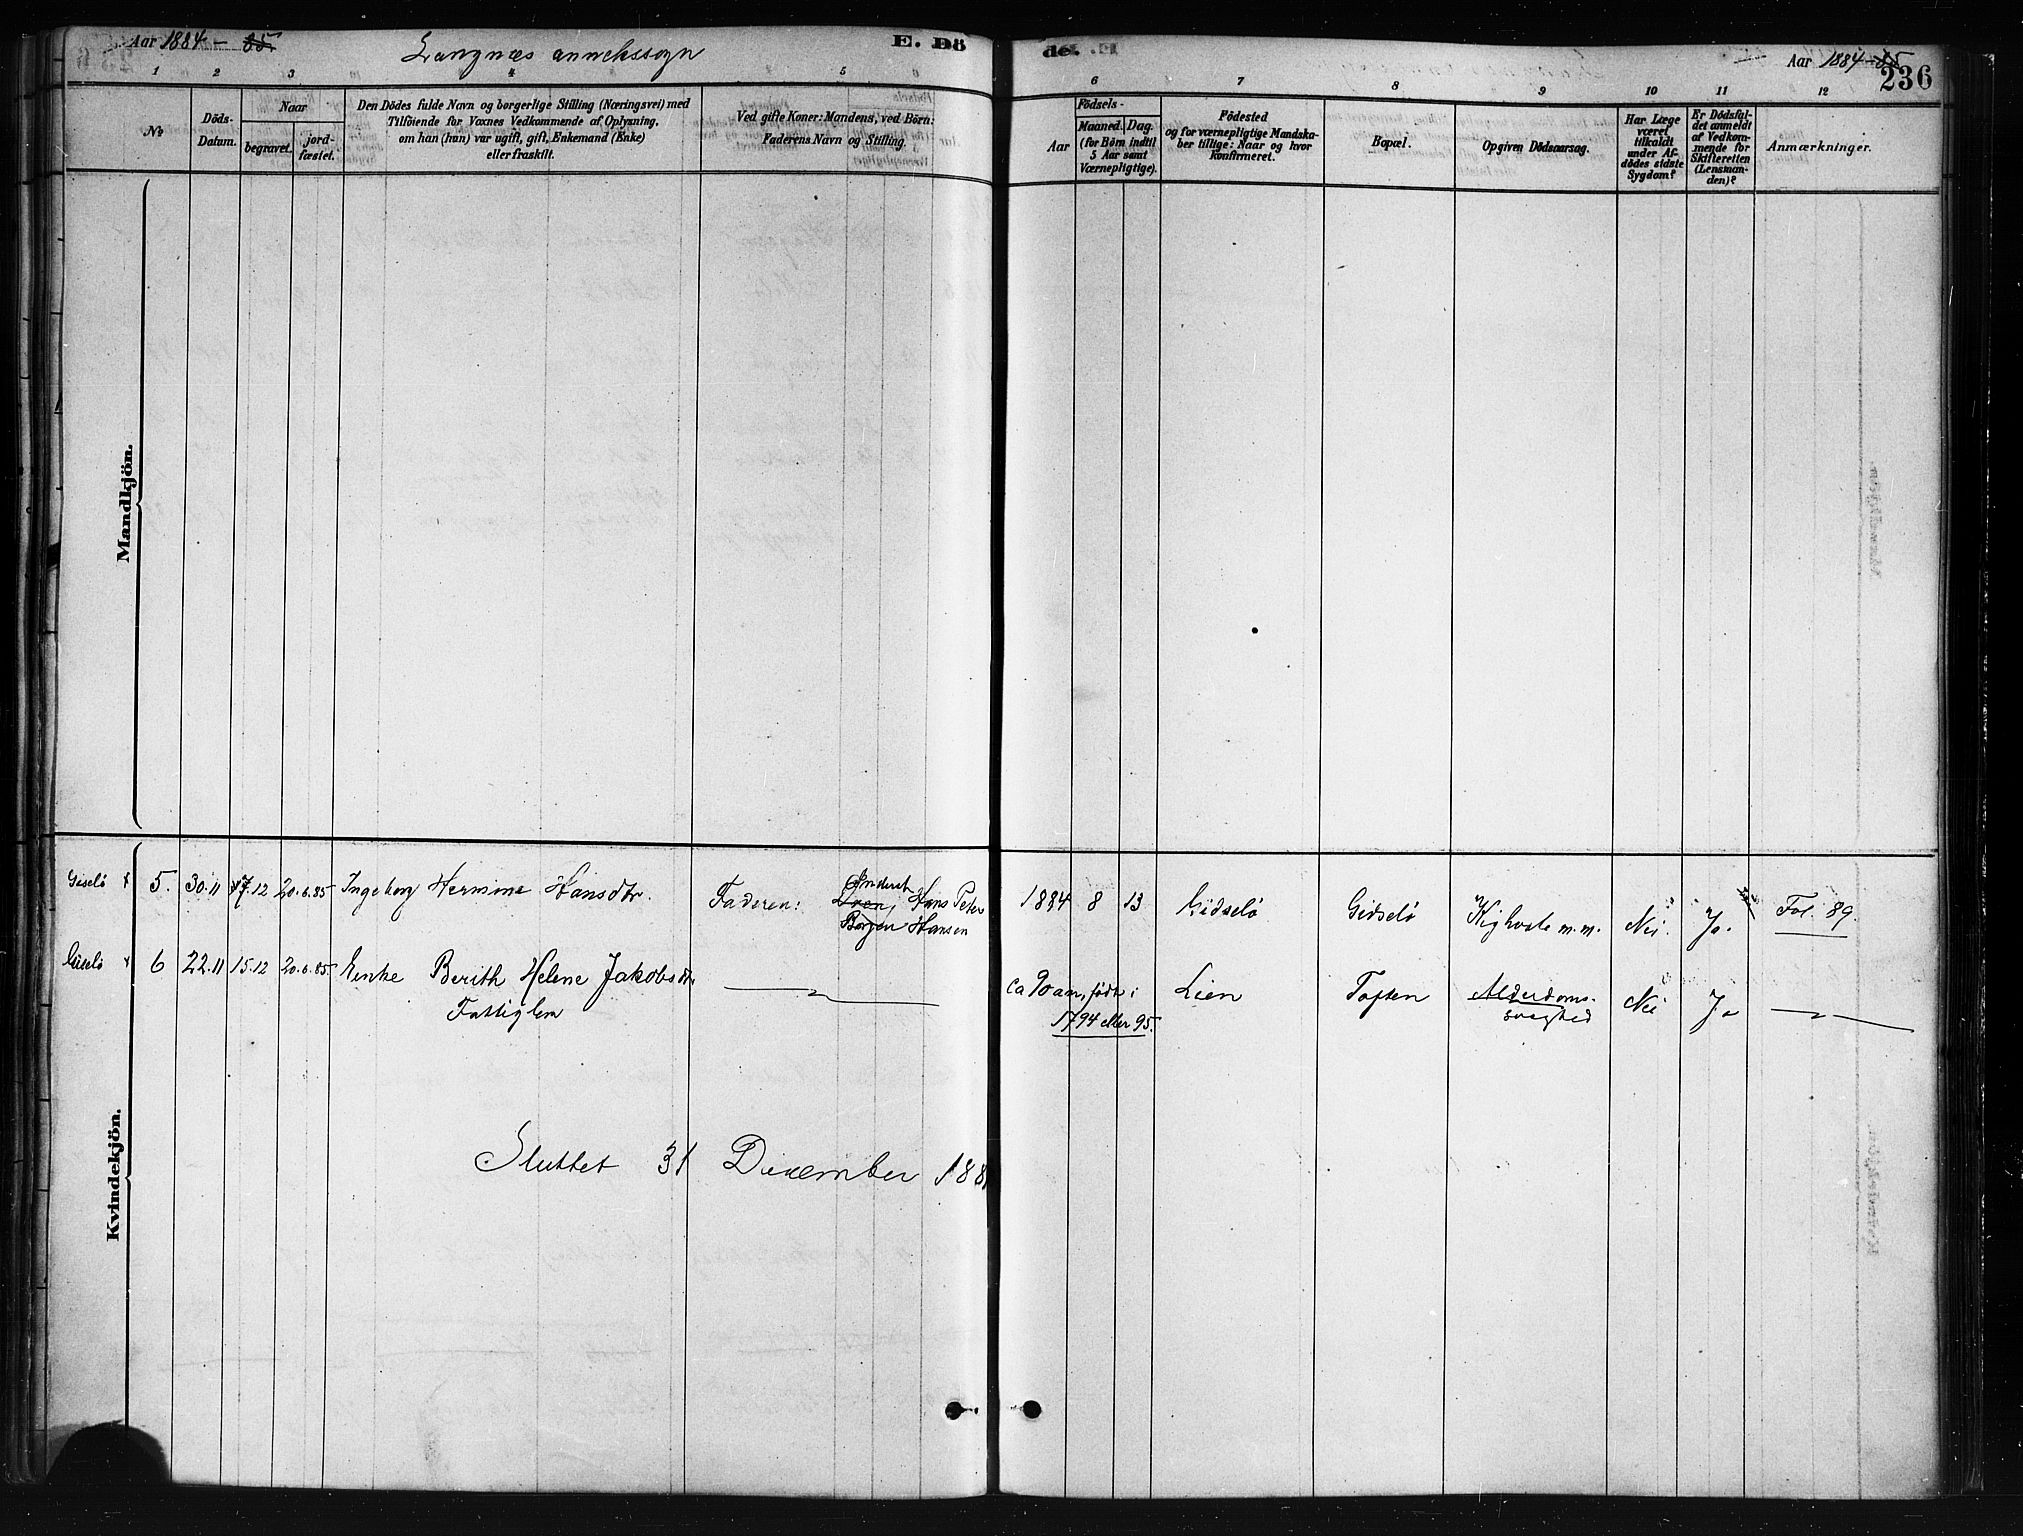 Aar 1884 - 85
Langnæs annekssogn
E. Dö
de.
Aar 1884-85
236
1 2 3 4 5 6 7 8 9 10 11 12
No
Döds-
Datum.
Naar
begravet.
jord-
fæstet.
Den Dödes fulde Navn og borgerlige Stilling (Næringsvei) med
Tilföiende for Voxnes Vedkommende af Oplysning,
om han (hun) var ugift, gift, Enkemand (Enke)
eller fraskilt.
Ved gifte Koner: Mandens, ved Börn:
Faderens Navn og Stilling.
Födsels-
Aar
Maaned.
Dag.
(for Börn indtil
5 Aar samt
Værnepligtige).
Födested
og for værnepligtige Mandska-
ber tillige: Naar og hvor
konfirmeret.
Bopæl.
Opgiven Dödsaarsag.
Har Læge
været
tilkaldt
under Af-
dödes sidste
Sygdom?
Er Dödsfal-
det anmeldt
af Vedkom-
mende for
Skifteretten
(Lensman-
den)?
Anmærkninger.
Mandkjön.
Kvindekjön.
Giselö 5. 30.11 17.12 20.6.85 Ingeborg Hermine Hansdtr. Faderen: Inderst Hans Peter
Hansen
1884 8 13 Gidselö Gidselö Kighoste m.m. Nei. Ja. Fol. 89.
Giselö 6 22.11 15.12 20.6.85 Enke Berith Helene Jakobsdtr.
Fattiglem
ca 90 aar, født i
1794 eller 95.
Lien Toften Alderdoms-
svaghed
Nei Ja
Sluttet 31 December 188